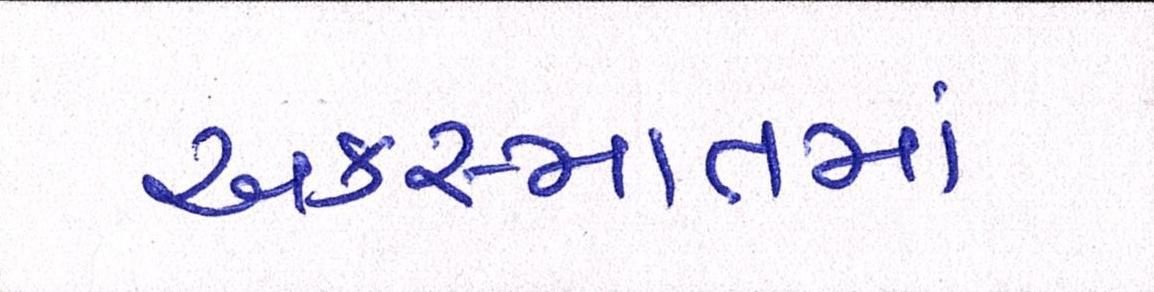 અકસ્માતમાં